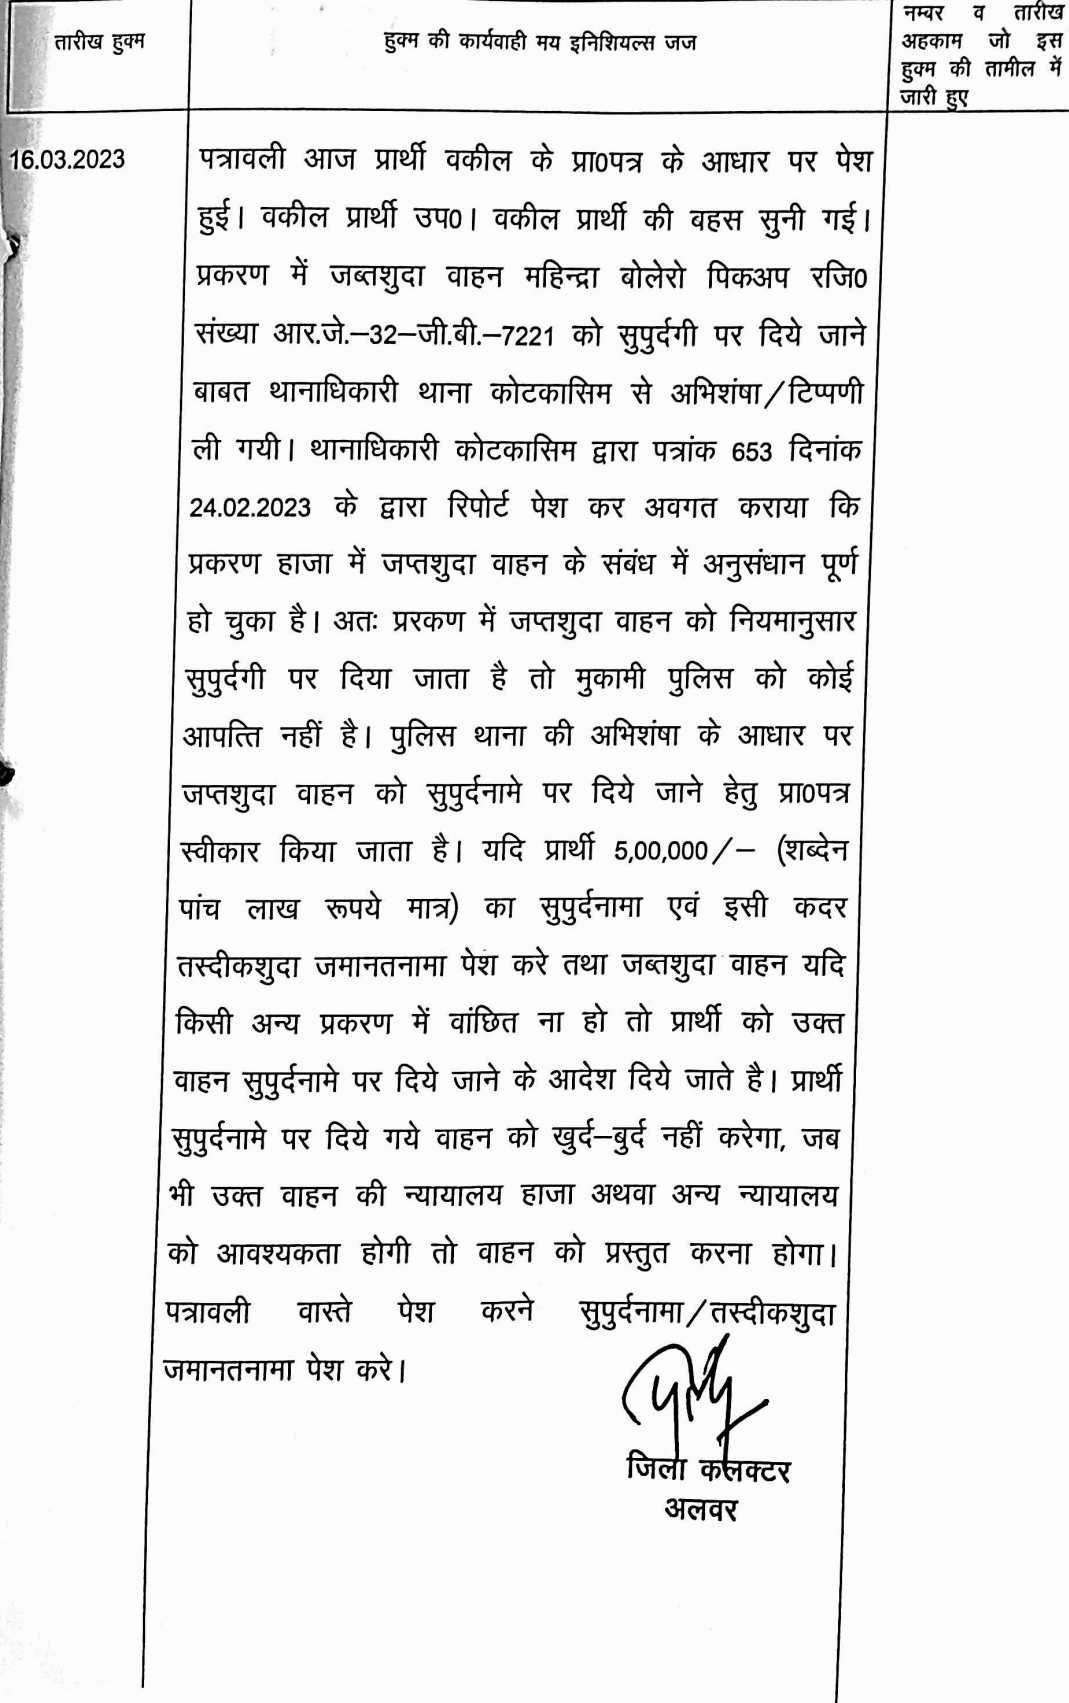 तारीख हुक्म
हुक्म की कार्यवाही मय इनिशियल्स जज
नम्बर व तारीख
अहकाम जो इस
हुक्म की तामील में
जारी हुए
16.03.2023
पत्रावली आज प्रार्थी वकील के प्रा0पत्र के आधार पर पेश
हुई। वकील प्रार्थी उप0। वकील प्रार्थी की बहस सुनी गई।
प्रकरण में जब्तशुदा वाहन महिन्द्रा बोलेरो पिकअप रजि0
संख्या आर.जे.–32–जी.बी.–7221 को सुपुर्दगी पर दिये जाने
बाबत थानाधिकारी थाना कोटकासिम से अभिशंषा/टिप्पणी
ली गयी। थानाधिकारी कोटकासिम द्वारा पत्रांक 653 दिनांक
24.02.2023 के द्वारा रिपोर्ट पेश कर अवगत कराया कि
प्रकरण हाजा में जप्तशुदा वाहन के संबंध में अनुसंधान पूर्ण
हो चुका है। अतः प्ररकण में जप्तशुदा वाहन को नियमानुसार
सुपुर्दगी पर दिया जाता है तो मुकामी पुलिस को कोई
आपत्ति नहीं है। पुलिस थाना की अभिशंषा के आधार पर
जप्तशुदा वाहन को सुपुर्दनामे पर दिये जाने हेतु प्रा0पत्र
स्वीकार किया जाता है। यदि प्रार्थी 5,00,000/– (शब्देन
पांच लाख रूपये मात्र) का सुपुर्दनामा एवं इसी कदर
तस्दीकशुदा जमानतनामा पेश करे तथा जब्तशुदा वाहन यदि
किसी अन्य प्रकरण में वांछित ना हो तो प्रार्थी को उक्त
वाहन सुपुर्दनामे पर दिये जाने के आदेश दिये जाते है। प्रार्थी
सुपुर्दनामे पर दिये गये वाहन को खुर्द–बुर्द नहीं करेगा, जब
भी उक्त वाहन की न्यायालय हाजा अथवा अन्य न्यायालय
को आवश्यकता होगी तो वाहन को प्रस्तुत करना होगा।
पत्रावली वास्ते पेश करने सुपुर्दनामा/तस्दीकशुदा
जमानतनामा पेश करे।
जिला कलक्टर
अलवर